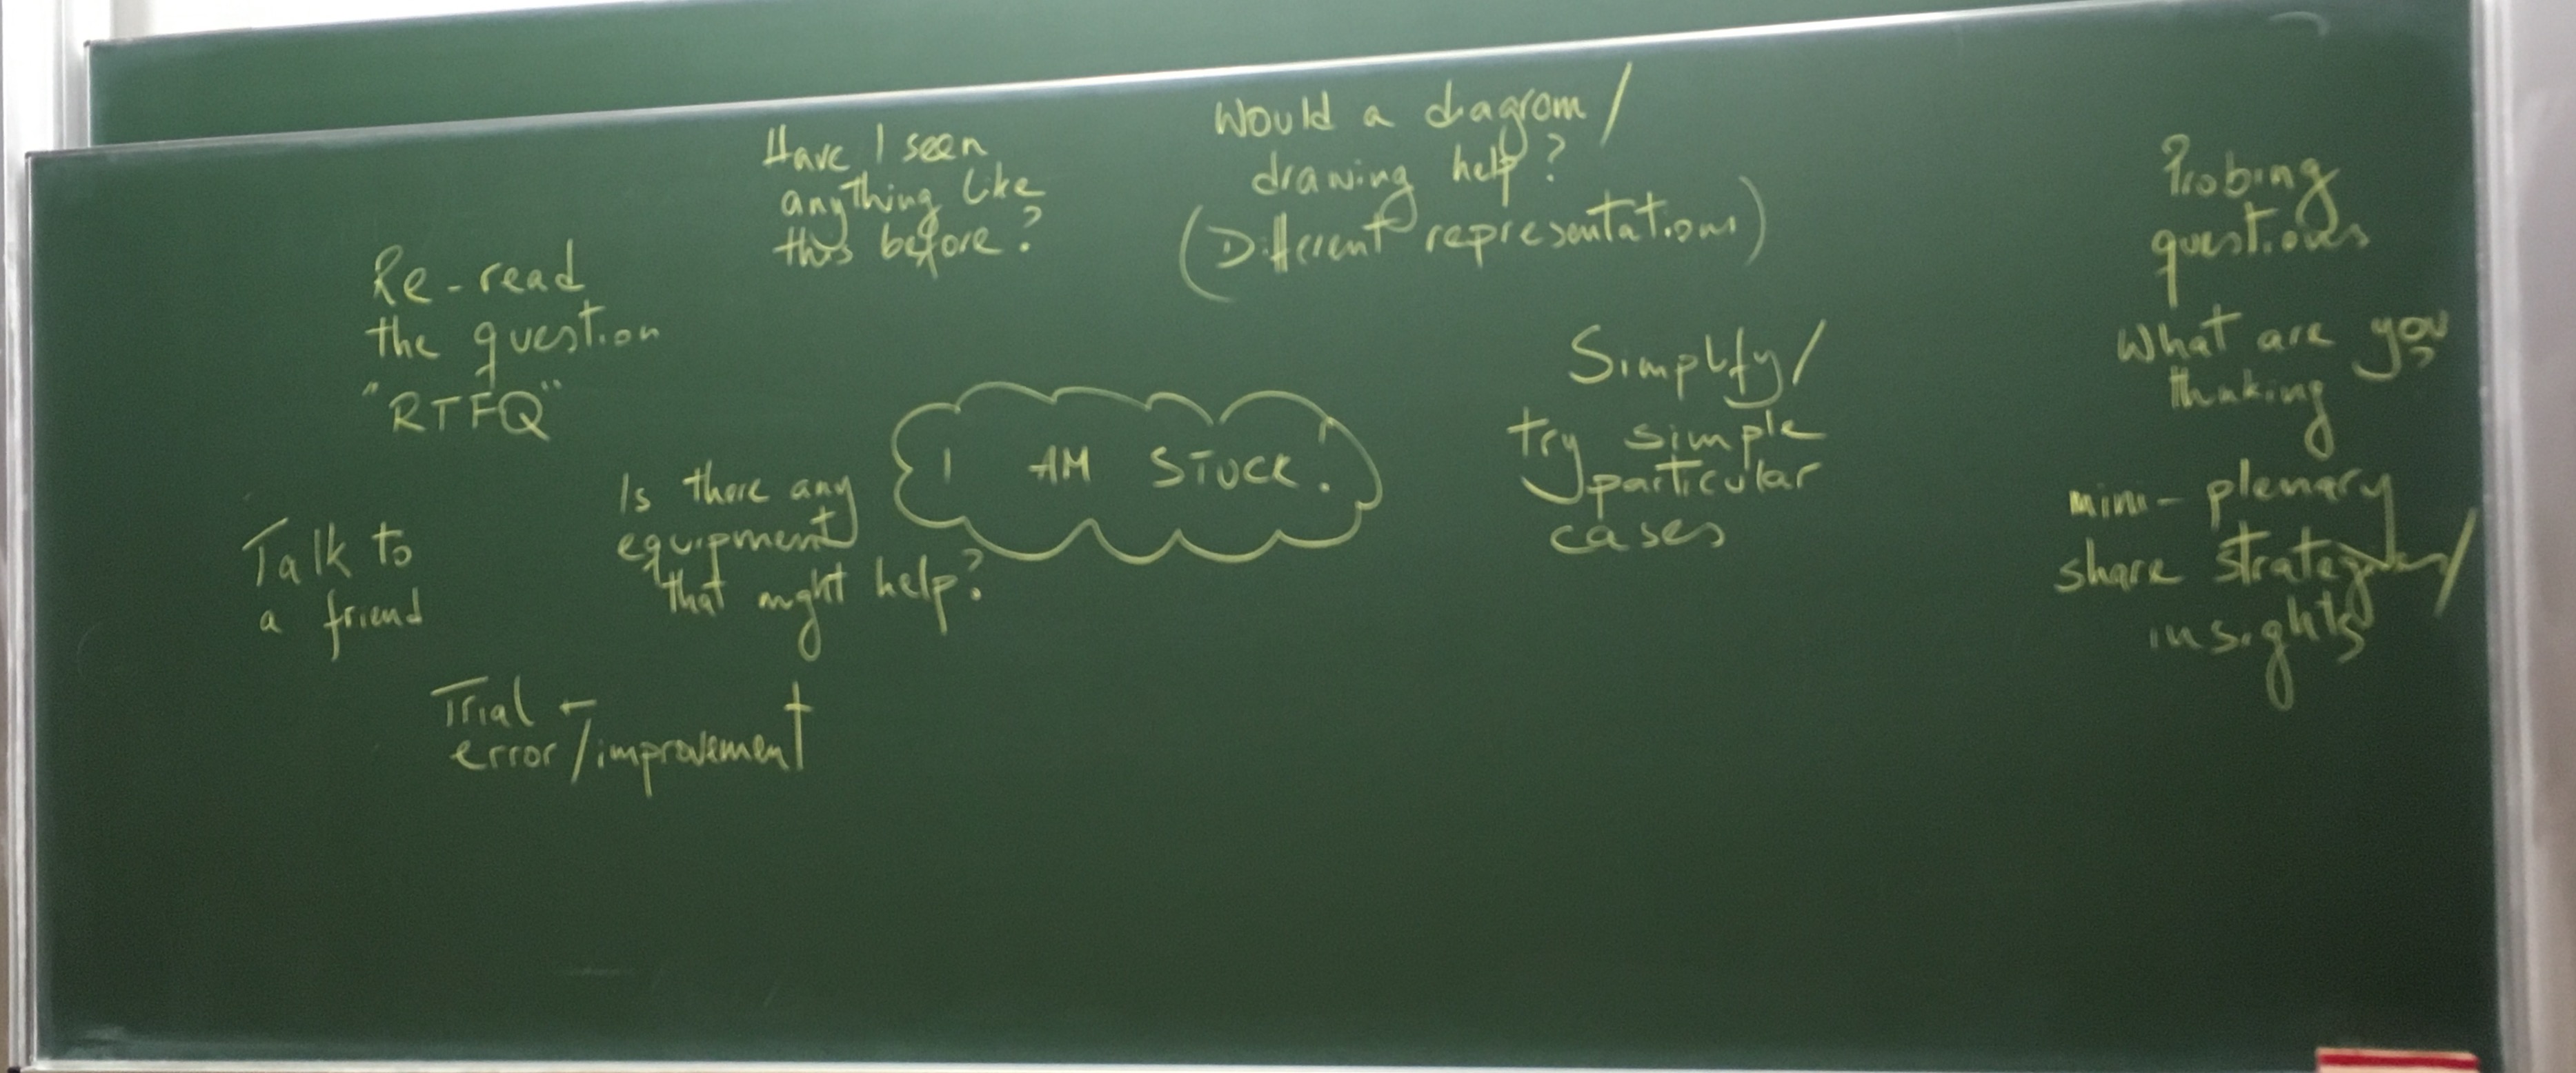 Have I seen
anything like
this before?
Would a diagram/
drawing help?
(Different representations)
Re-read
the question
"RTFQ"
I AM STUCK.
Simplify/
try simple
particular
cases
Is there any
equipment
that might help?
Talk to
a friend
Trial +
error/improvement
Probing
questions
What are you
thinking?
mini-plenary
share strategies/
insights